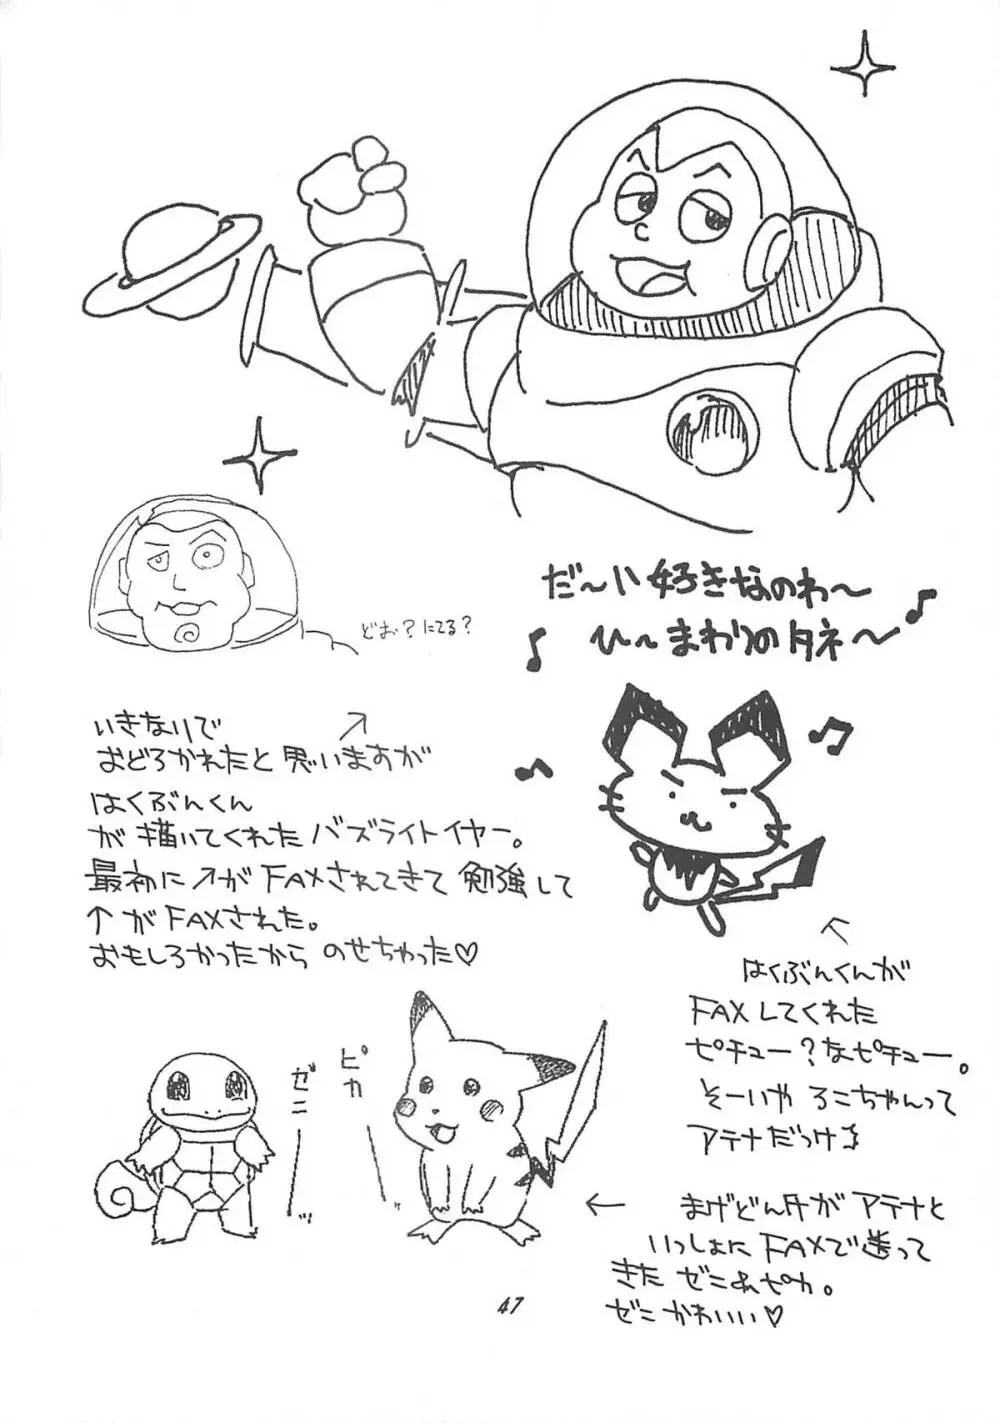 だ～い好きなのわ～
ひ～まわりのタネ～
どお?にてる?
いきなりで
おどろかれたと思いますが
はくぶんくん
が描いてくれたバズライトイヤー。
最初に↗がFAXされてきて勉強して
↑がFAXされた。
おもしろかったからのせちゃった♡
はくぶんくんが
FAXしてくれた
ピチュー?なピチュー。
そーいやろこちゃんって
アテナだっけ
ゼニ
ピカ
まげどん牛がアテナと
いっしょにFAXで送って
きたゼニ&ピカ。
ゼニかわいい♡
47